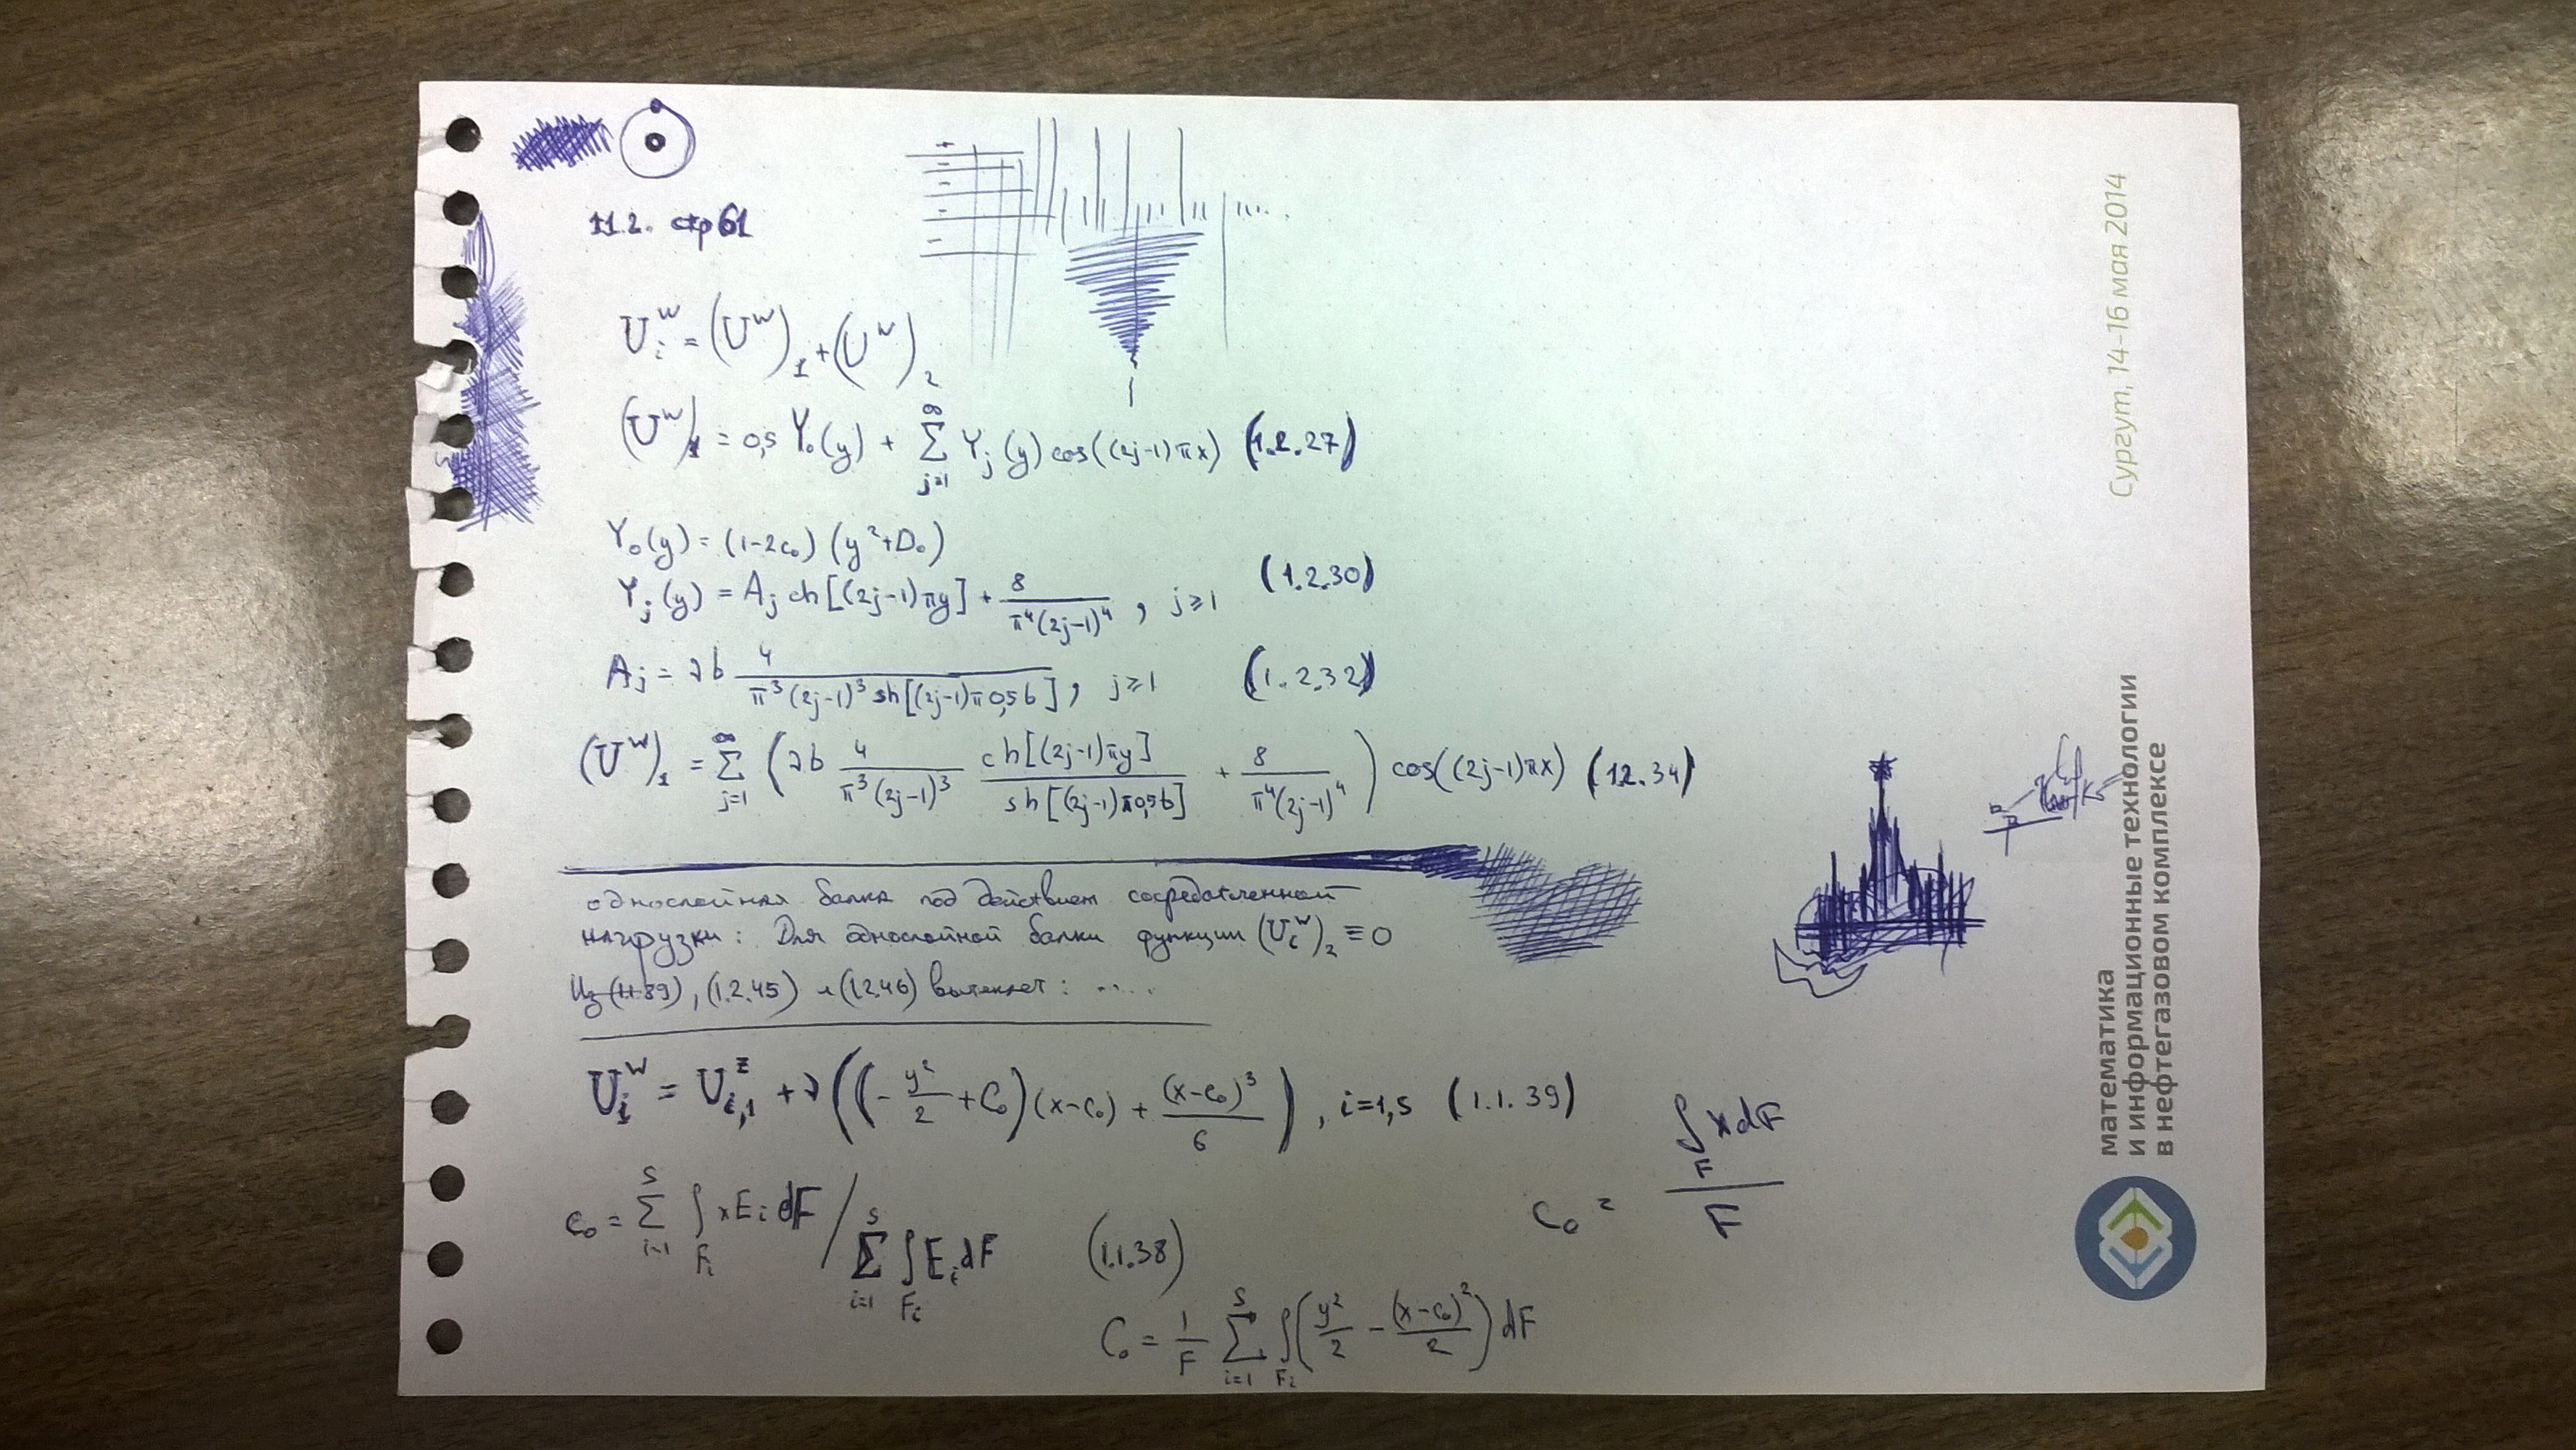 11.2. стр 61
U_i^w = (U^w)_1 + (U^w)_2
(U^w)_1 = 0,5 Y_0(y) + ∑_{j=1}^∞ Y_j(y) cos((2j-1)πx) (1.2.27)
Y_0(y) = (1-2c_0)(y²+D_0)
Y_j(y) = A_j ch[(2j-1)πy] + 8/(π⁴(2j-1)⁴), j≥1 (1.2.30)
A_j = νb 4/(π³(2j-1)³ sh[(2j-1)π0,5b]), j≥1 (1.2.32)
(U^w)_1 = ∑_{j=1}^∞ (νb 4/(π³(2j-1)³) ch[(2j-1)πy]/sh[(2j-1)π0,5b] + 8/(π⁴(2j-1)⁴)) cos((2j-1)πx) (1.2.34)
однослойная балка под действием сосредоточенной
нагрузки: Для однослойной балки функции (U_i^w)_2 ≡ 0
Из (1.1.39), (1.2.45) и (1.2.46) вытекает: .....
U_i^w = U_{i,1}^z + ν((-y²/2 + C_0)(x-c_0) + (x-c_0)³/6), i=1,s (1.1.39)
c_0 = ∑_{i=1}^s ∫_{F_i} xE_i dF / ∑_{i=1}^s ∫_{F_i} E_i dF (1.1.38)
c_0 = ∫_F x dF / F
C_0 = 1/F ∑_{i=1}^s ∫_{F_i} (y²/2 - (x-c_0)²/2) dF
Сургут, 14-16 мая 2014
математика
и информационные технологии
в нефтегазовом комплексе